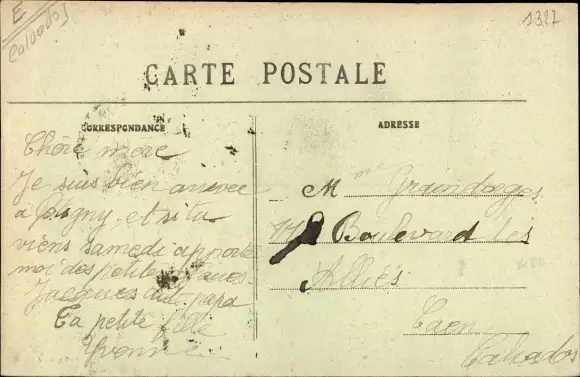 E
Calvados
1327
CARTE POSTALE
CORRESPONDANCE
ADRESSE
Chère mère
Je suis bien arrivée
à et si tu
viens samedi apporte
moi des petites
Jacques avec papa
Ta petite fille
Yvonne
Mme
Boulevard des
Alliés
Caen
Calvados